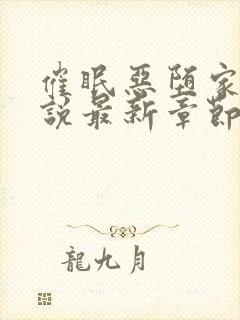 催眠惡堕家
說最新章節
龍九月